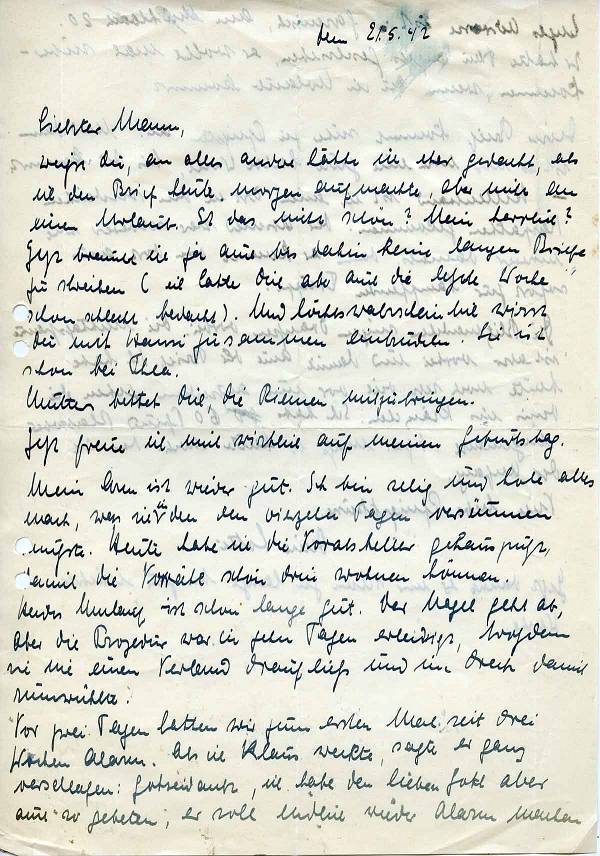 den 21.5.42
Liebster Mann,
weißt du, an alles andere hätte ich eher gedacht, als
ich den Brief heute morgen aufmachte, aber nicht an
einen Urlaub. Ist das nicht schön? Mein herrlich?
Jetzt brauche ich ja auch bis dahin keine langen Briefe
zu schreiben (ich hatte dich aber auch die letzte Woche
schon schlecht bedacht). Und höchstwahrscheinlich wirst
du mit Hansi zusammen eintrudeln. Sie ist
schon bei Thea.
Mutter bittet dich, die Riemen mitzubringen.
Jetzt freue ich mich wirklich auf meinen Geburtstag.
Mein Arm ist wieder gut. Ich bin selig und hole alles
nach, was ich in den den vierzehn Tagen versäumen
mußte. Heute habe ich die Vorratskeller geputzt,
damit die Vorräte schön drin wohnen können.
Umlauf ist schon lange gut. Der Nagel geht ab,
aber die Prozedur war in zehn Tagen erledigt, trotzdem
sie nie einen Verband drauf ließ und im Dreck damit
rumwühlte.
Vor zwei Tagen hatten wir zum ersten Mal seit drei
Wochen Alarm. Als ich Klaus weckte, sagte er ganz
verschlafen: gottseidank, ich habe den lieben Gott aber
auch so gebeten, er soll endlich wieder Alarm machen